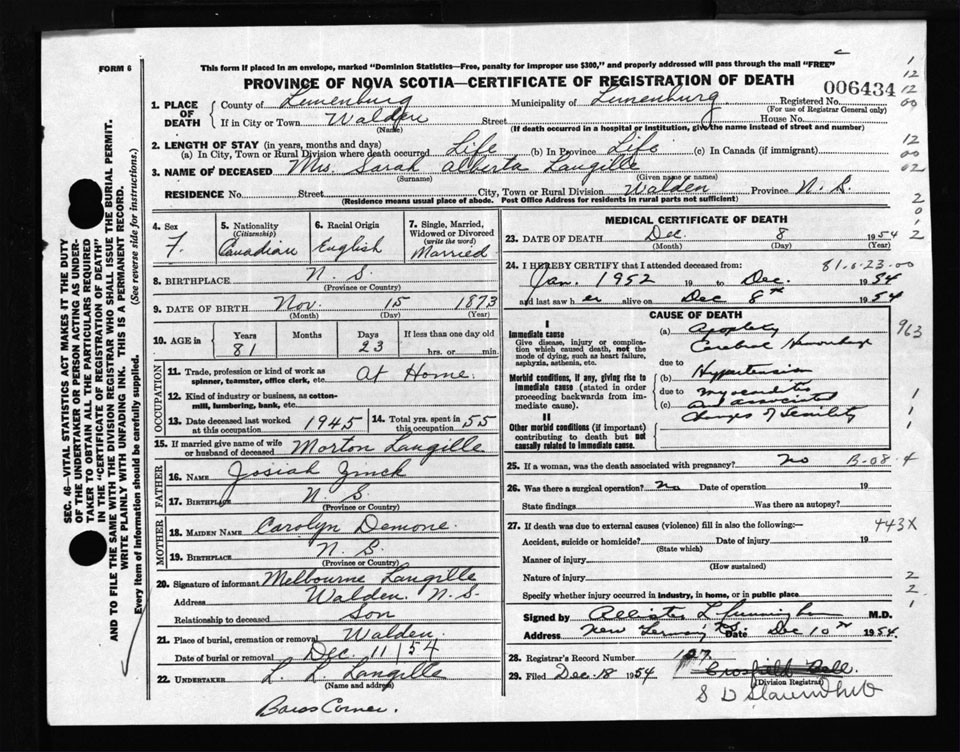 FORM 6
This form if placed in an envelope, marked "Dominion Statistics—Free, penalty for improper use $300," and properly addressed will pass through the mail "FREE"
PROVINCE OF NOVA SCOTIA—CERTIFICATE OF REGISTRATION OF DEATH
006434
1. PLACE OF DEATH County of Lunenburg Municipality of Lunenburg Registered No.
(For use of Registrar General only)
If in City or Town Walden Street House No.
(Name) (If death occurred in a hospital or institution, give the name instead of street and number)
2. LENGTH OF STAY (in years, months and days)
(a) In City, Town or Rural Division where death occurred Life (b) In Province Life (c) In Canada (if immigrant)
3. NAME OF DECEASED Mrs. Sarah Alberta Langille
(Surname) (Given name or names)
RESIDENCE No. Street City, Town or Rural Division Walden Province N. S.
(Residence means usual place of abode. Post Office Address for residents in rural parts not sufficient)
4. Sex F.
5. Nationality (Citizenship) Canadian
6. Racial Origin English
7. Single, Married, Widowed or Divorced (write the word) Married
8. BIRTHPLACE N. S.
(Province or Country)
9. DATE OF BIRTH Nov. 15 1873
(Month) (Day) (Year)
10. AGE in Years Months Days If less than one day old
81 23 hrs. or min.
OCCUPATION
11. Trade, profession or kind of work as spinner, teamster, office clerk, etc. At Home.
12. Kind of industry or business, as cotton-mill, lumbering, bank, etc.
13. Date deceased last worked at this occupation 1945
14. Total yrs. spent in this occupation 55
15. If married give name of wife or husband of deceased Morton Langille
FATHER
16. NAME Josiah Zinck
17. BIRTHPLACE N. S.
(Province or Country)
MOTHER
18. MAIDEN NAME Carolyn Demone.
19. BIRTHPLACE N. S.
(Province or Country)
20. Signature of informant Melbourne Langille
Address Walden. N. S.
Relationship to deceased Son
21. Place of burial, cremation or removal Walden.
Date of burial or removal Dec. 11/54
22. UNDERTAKER L. L. Langille
(Name and address)
Barss Corner.
MEDICAL CERTIFICATE OF DEATH
23. DATE OF DEATH Dec. 8 1954
(Month) (Day) (Year)
24. I HEREBY CERTIFY that I attended deceased from: 81.0.23.00
Jan. 1952 to Dec. 1954
and last saw h er alive on Dec 8th 1954
CAUSE OF DEATH
I
Immediate cause
Give disease, injury or complication which caused death, not the mode of dying, such as heart failure, asphyxia, asthenia, etc.
(a) Apoplexy
Cerebral Hemorrhage
due to
Morbid conditions, if any, giving rise to immediate cause (stated in order proceeding backwards from immediate cause).
(b) Hypertension
due to
(c) Myocarditis
and associated
changes of senility
II
Other morbid conditions (if important) contributing to death but not causally related to immediate cause.
963
25. If a woman, was the death associated with pregnancy? no B-08.4
26. Was there a surgical operation? no Date of operation 19
State findings Was there an autopsy?
27. If death was due to external causes (violence) fill in also the following:— 443X
Accident, suicide or homicide? Date of injury 19
(State which)
Manner of injury
(How sustained)
Nature of injury
Specify whether injury occurred in industry, in home, or in public place
Signed by M.D.
Address New Germany N.S. Date Dec 10th 1954.
28. Registrar's Record Number 127.
29. Filed Dec. 18 1954
(Division Registrar)
SEC. 46—VITAL STATISTICS ACT MAKES IT THE DUTY
OF THE UNDERTAKER OR PERSON ACTING AS UNDER-
TAKER TO OBTAIN ALL THE PARTICULARS REQUIRED
IN THE "CERTIFICATE OF REGISTRATION OF DEATH"
AND TO FILE THE SAME WITH THE DIVISION REGISTRAR WHO SHALL ISSUE THE BURIAL PERMIT.
WRITE PLAINLY WITH UNFADING INK. THIS IS A PERMANENT RECORD.
Every item of Information should be carefully supplied. (See reverse side for instructions.)
1
12
12
00
12
00
02
2
0
1
2
1
1
2
2
1